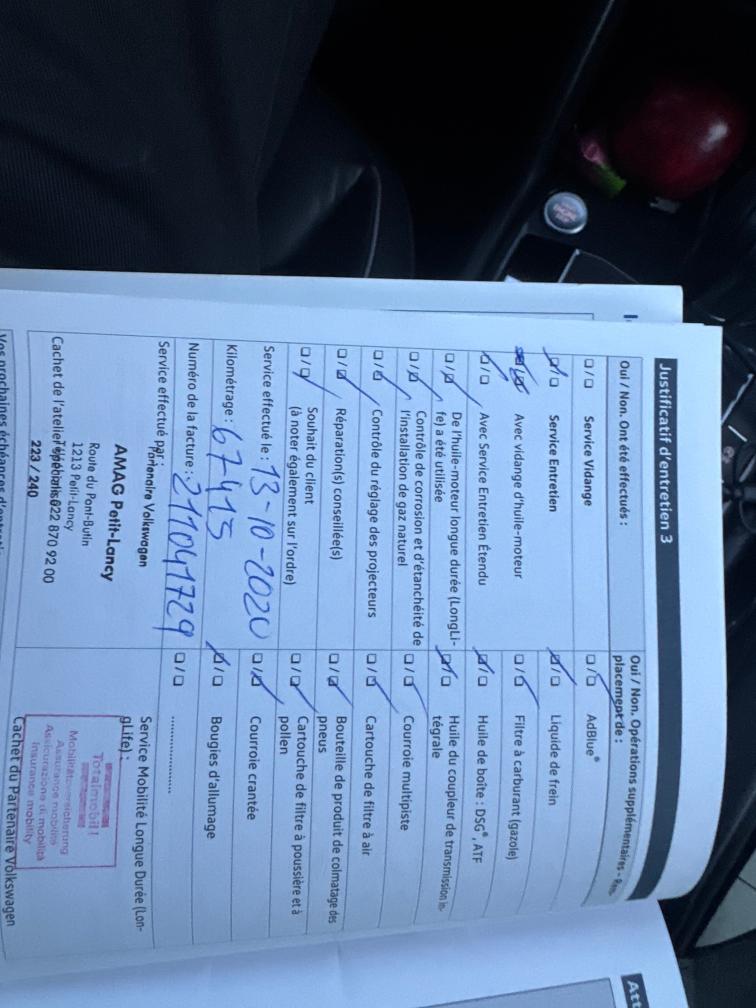 Justificatif d'entretien 3
Oui / Non. Ont été effectués :
Service Vidange
Service Entretien
Avec vidange d'huile-moteur
Avec Service Entretien Étendu
De l'huile-moteur longue durée (LongLi-
fe) a été utilisée
Contrôle de corrosion et d'étanchéité de
l'installation de gaz naturel
Contrôle du réglage des projecteurs
Réparation(s) conseillée(s)
Souhait du client
(à noter également sur l'ordre)
Service effectué le : 13-10-2020
Kilométrage : 67415
Numéro de la facture : 211041729
Service effectué par :
Partenaire Volkswagen
AMAG Petit-Lancy
Route du Pont-Butin
1213 Petit-Lancy
Cachet de l'atelier spécialisé
Téléphone 022 870 92 00
223 / 240
Oui / Non. Opérations supplémentaires - Rem-
placement de :
AdBlue®
Liquide de frein
Filtre à carburant (gazole)
Huile de boîte : DSG®, ATF
Huile du coupleur de transmission in-
tégrale
Courroie multipiste
Cartouche de filtre à air
Bouteille de produit de colmatage des
pneus
Cartouche de filtre à poussière et à
pollen
Courroie crantée
Bougies d'allumage
....................
Service Mobilité Longue Durée (Lon-
gLife) :
Totalmobil!
Mobilitätsversicherung
Assurance mobilité
Assicurazione di mobilità
Insurance mobility
Cachet du Partenaire Volkswagen
Vos prochaines échéances d'entretien
Att